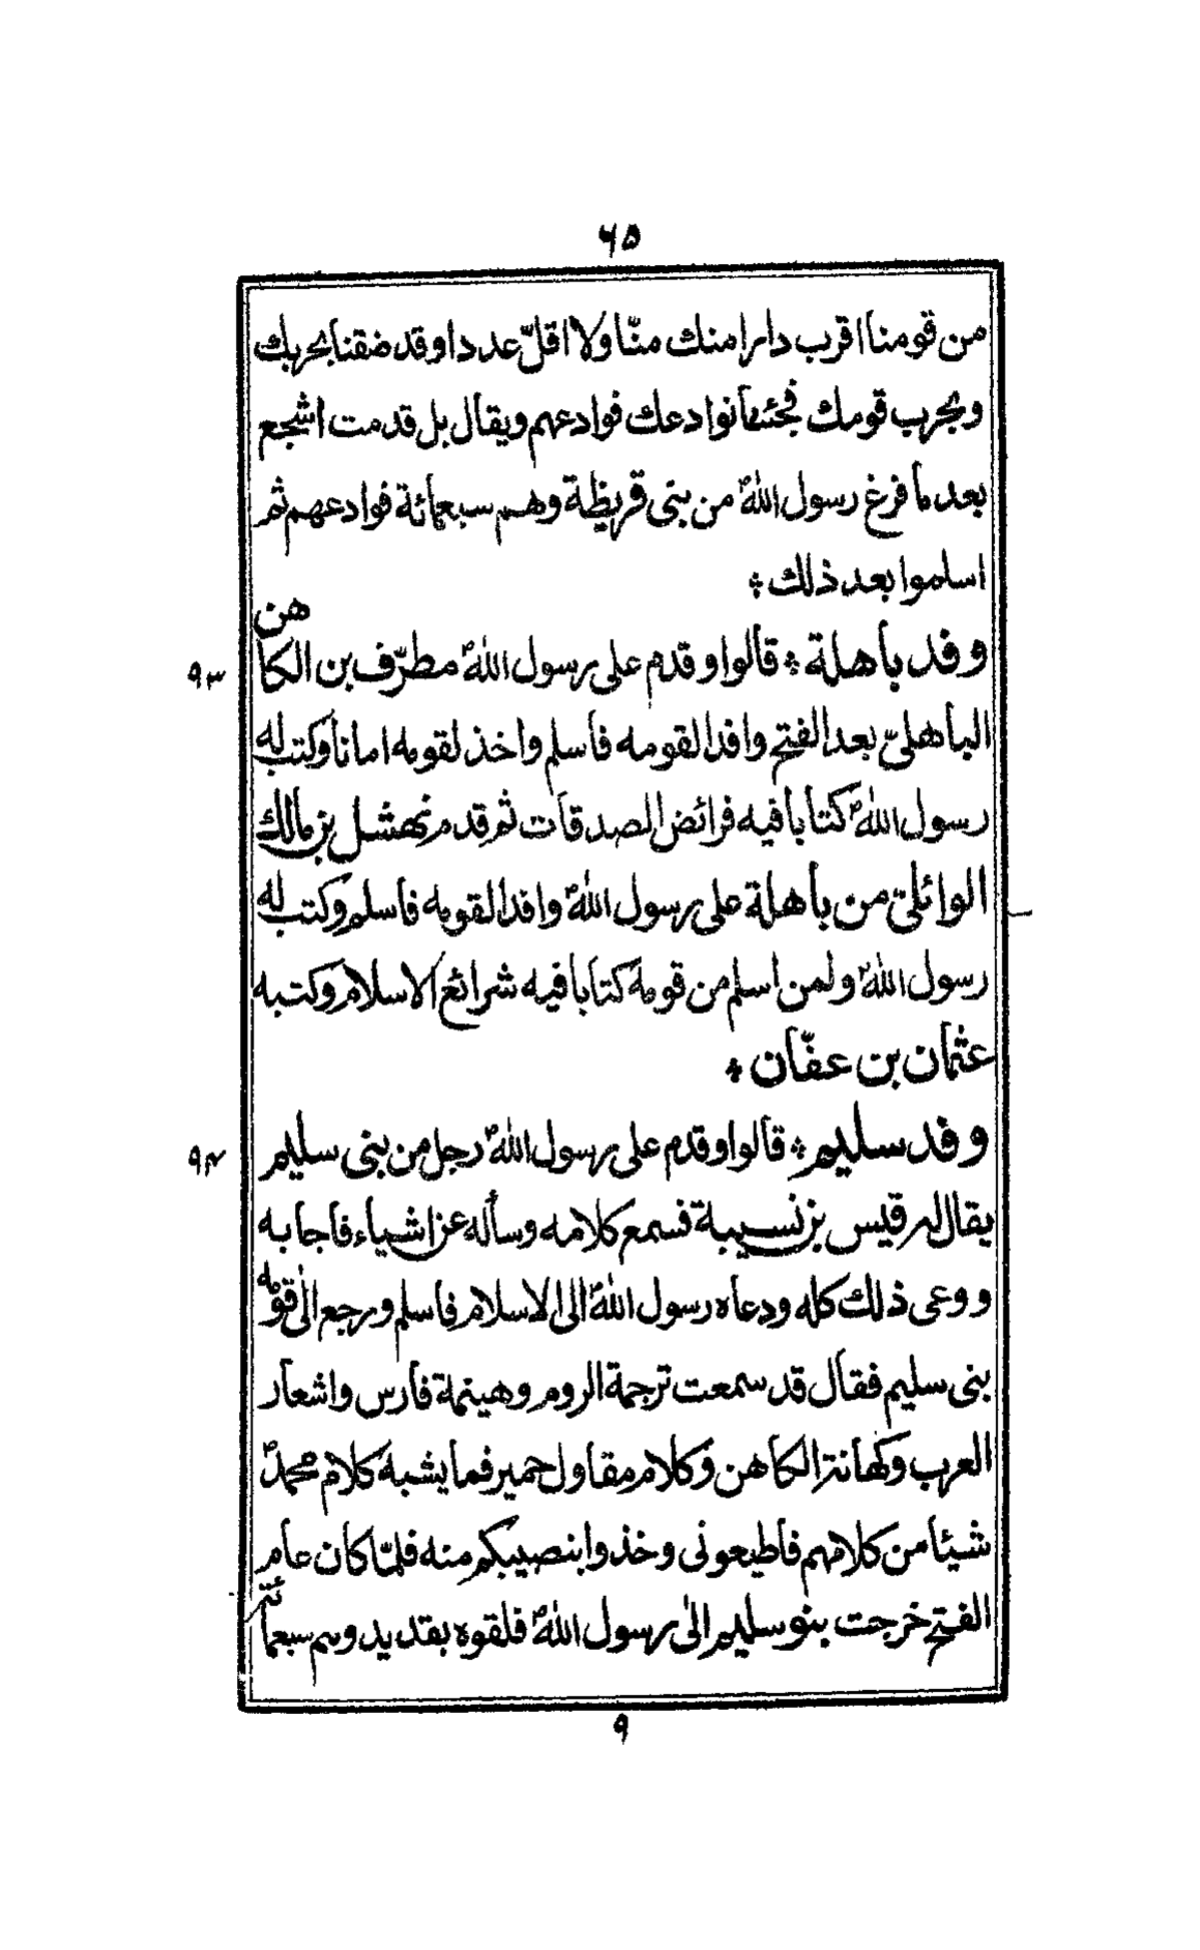 ۶۵
من قومنا اقرب دارا منك منّا ولا اقلّ عددا وقد ضقنا بحربك
وبحرب قومك فجئنا نوادعك فوادعهم ويقال بل قدمت اشجع
بعد ما فرغ رسول اللهؐ من بنى قريظة وهم سبعمائة فوادعهم ثم
اسلموا بعد ذلك ؞
وفد باهلة ؞ قالوا وقدم على رسول اللهؐ مطرّف بن الكاهن
۹۳
الباهلىّ بعد الفتح وافدا لقومه فأسلم واخذ لقومه امانا وكتب له
رسول اللهؐ كتابا فيه فرائض الصدقات ثم قدم نهشل بن مالك
الوائلىّ من باهلة على رسول اللهؐ وافدا لقومه فأسلم وكتب له
رسول اللهؐ ولمن اسلم من قومه كتابا فيه شرائع الاسلام وكتبه
عثمان بن عفّان ؞
وفد سليم ؞ قالوا وقدم على رسول اللهؐ رجل من بنى سليم
۹۴
يقال له قيس بن نسيبة فسمع كلامه وسأله عن اشياء فأجابه
ووعى ذلك كله ودعاه رسول اللهؐ الى الاسلام فاسلم ورجع الى قومه
بنى سليم فقال قد سمعت ترجمة الروم وهينمة فارس واشعار
العرب وكهانة الكاهن وكلام مقاول حمير فما يشبه كلام محمدؐ
شيئا من كلامهم فأطيعونى وخذوا بنصيبكم منه فلمّا كان عام
الفتح خرجت بنو سليم الى رسول اللهؐ فلقوه بقديد وهم سبعمائة
۹